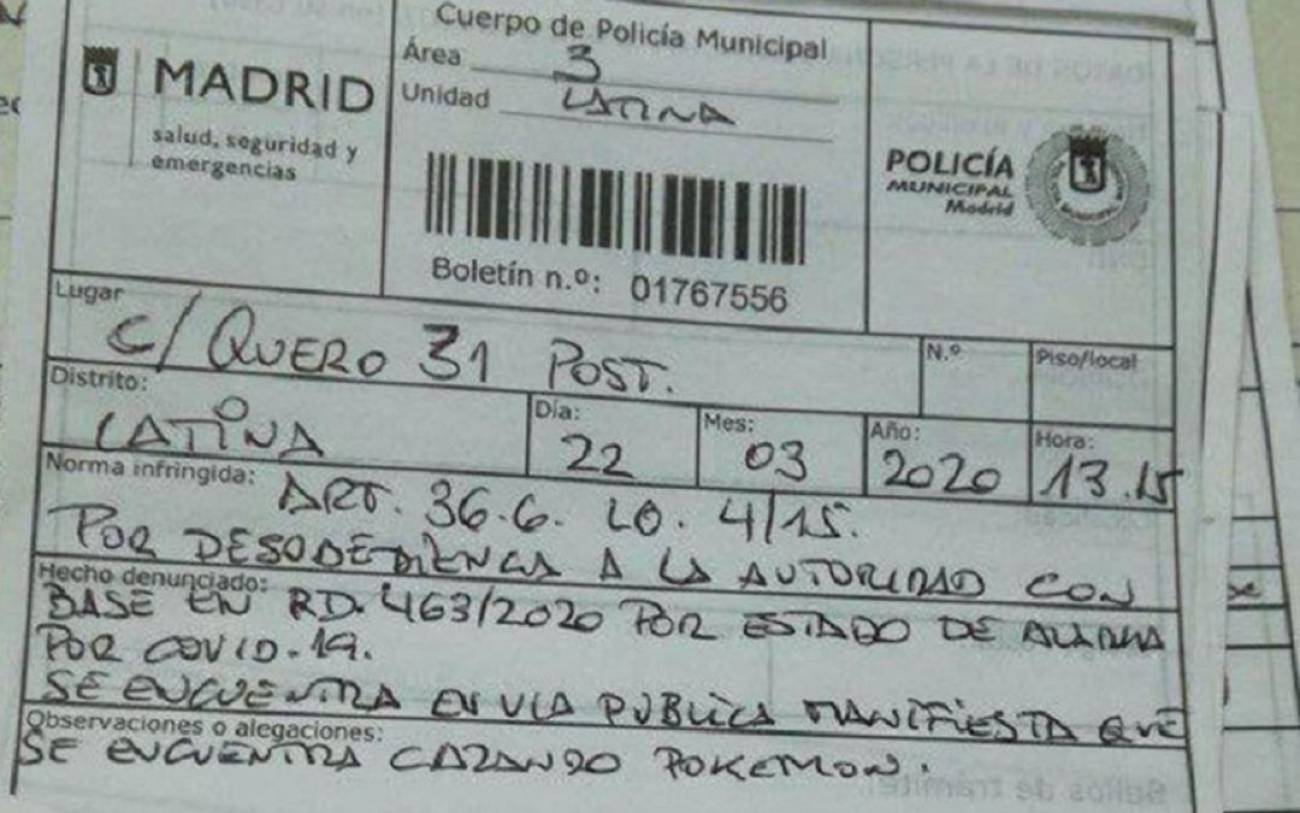 Cuerpo de Policía Municipal
MADRID
salud, seguridad y
emergencias
Área 3
Unidad LATINA
POLICÍA
MUNICIPAL
Madrid
Boletín n.º: 01767556
Lugar
C/ QUERO 31 POST.
N.º
Piso/local
Distrito:
LATINA
Día:
22
Mes:
03
Año:
2020
Hora:
13.15
Norma infringida: ART. 36.6. LO. 4/15.
POR DESOBEDIENCIA A LA AUTORIDAD CON
Hecho denunciado:
BASE EN RD. 463/2020 POR ESTADO DE ALARMA
POR COVID-19.
SE ENCUENTRA EN VIA PUBLICA MANIFIESTA QUE
Observaciones o alegaciones:
SE ENCUENTRA CAZANDO POKEMON.